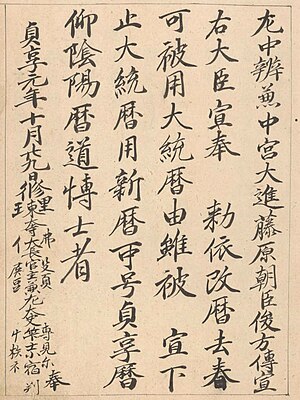 左中辨兼中宮大進藤原朝臣俊方傳宣
右大臣宣奉 勅依改暦去春
可被用大統暦由雖被 宣下
止大統暦用新暦号貞享暦
仰陰陽暦道愽士者
貞享元年十月廿九日修理 奉